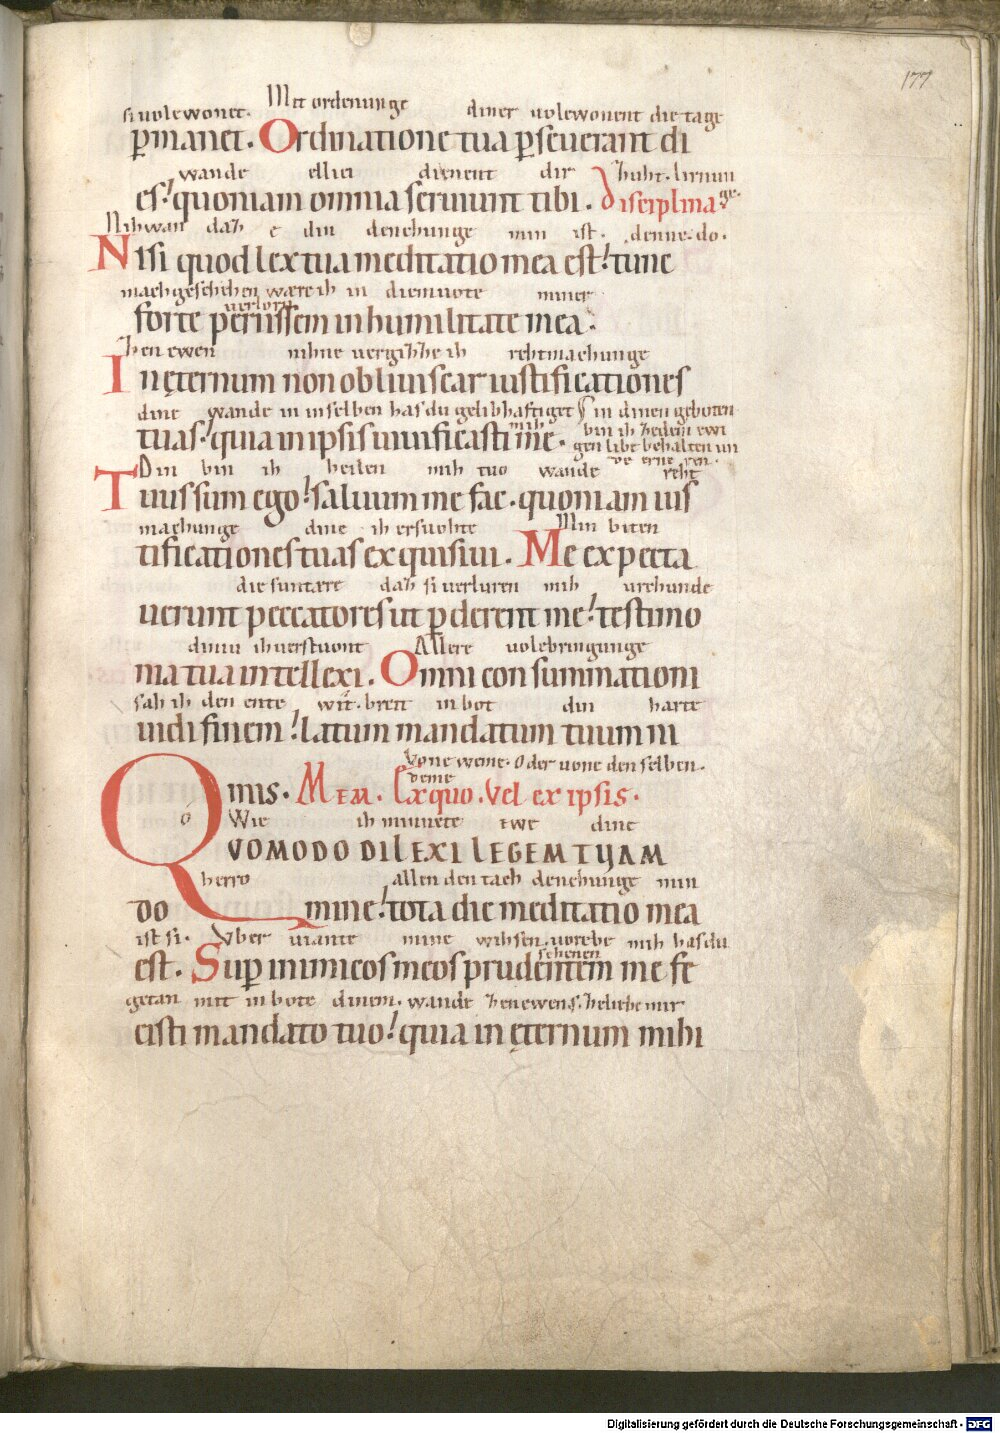 177
si volewonet. Mit ordenunge diner volewonent die tage
p̄manet. Ordinatione tua p̄seuerant di
wande elliu dienent dir
es! quoniam omnia seruiunt tibi. disciplina
Nihwan daȥ e diu denchunge min ist. denne. do.
Nisi quod lex tua meditatio mea est! tunc
wære ih in diemuote miner
verlorn
forte periissem in humilitate mea.
ȥen ewen nihne vergiȥȥe ih rehtmachunge
In ęternum non obliuiscar iustificationes
dine wande in in selben hasdu gelibhaftiget in dinen geboten
mih bin ih
tuas! quia in ipsis uiuificasti me. gen libe behalten
Din bin ih heilen mih tuo wande reht
Tuus sum ego! saluum me fac. quoniam ius
machunge dine ih ersuohte Min biten
tificationes tuas exquisiui. Me expecta
die suntære daȥ si verluren mih urchunde
uerunt peccatores ut p̄derent me! testimo
diniu ih verstuont Allere volebringunge
nia tua intellexi. Omni consummationi
sah ih den ente wit. breit in bot din harte
uidi finem! latum mandatum tuum ni
vone weme. oder vone den selben.
mis. MEM. Ex quo. Vel ex ipsis.
Wie ih minnete ewe dine
QVOMODO DILEXI LEGEM TUAM
herro allen den tach denchunge min
do mine! tota die meditatio mea
ist si. Vber viante mine wihsen. vorsehenen mih hasdu
est. Sup̄ inimicos meos prudentem me fe
getan mit in bote dinem. wande ȥen ewen ȥeliebe mir
cisti mandato tuo! quia in ęternum mihi
Digitalisierung gefördert durch die Deutsche Forschungsgemeinschaft - DFG